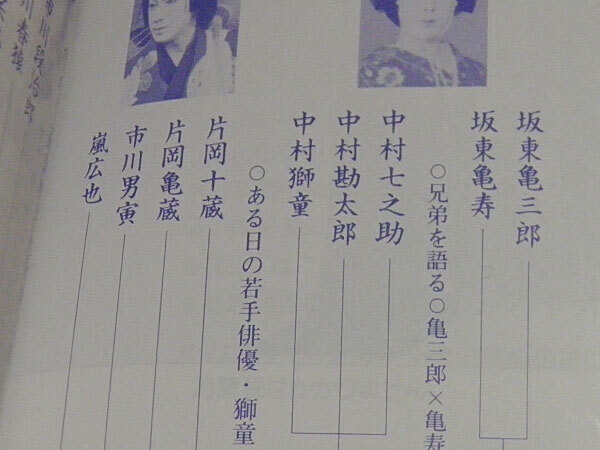 坂東亀三郎
坂東亀寿
○兄弟を語る○亀三郎×亀寿
中村七之助
中村勘太郎
中村獅童
○ある日の若手俳優・獅童
片岡十蔵
片岡亀蔵
市川男寅
嵐広也
市川段治郎
市川春猿